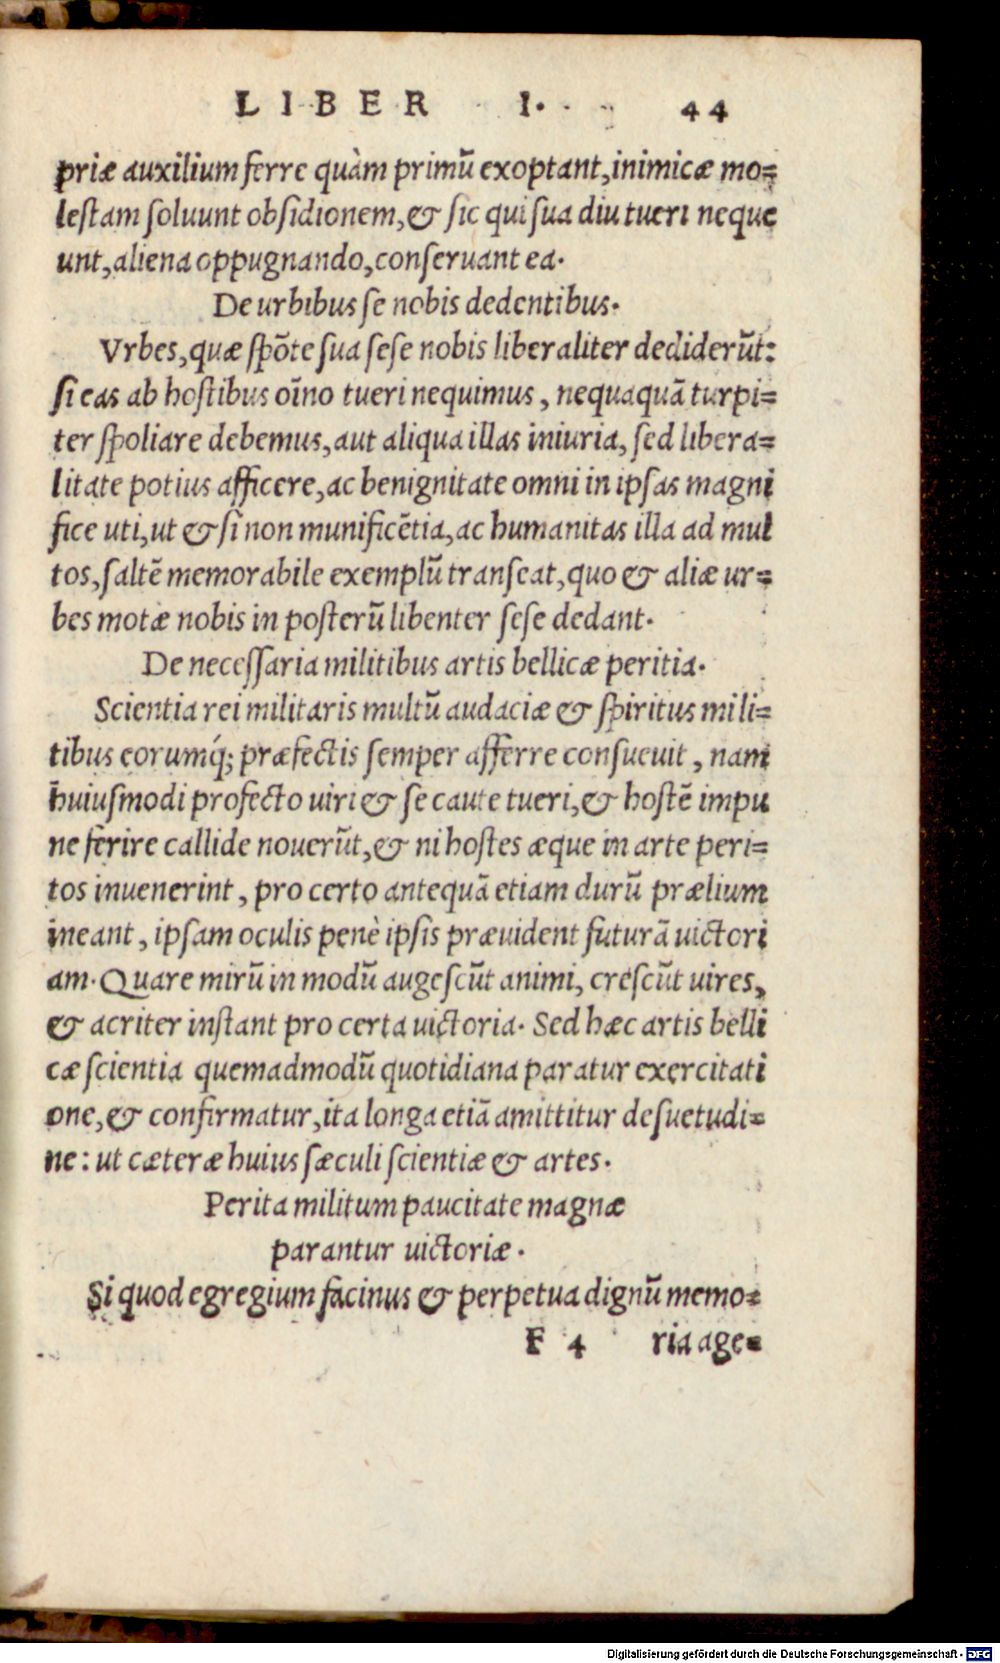 LIBER I. 44
priæ auxilium ferre quàm primũ exoptant, inimicæ mo=
lestam soluunt obsidionem, & sic qui sua diu tueri neque
unt, aliena oppugnando, conseruant ea.
De urbibus se nobis dedentibus.
Vrbes, quæ spõte sua sese nobis liberaliter dediderũt:
si eas ab hostibus oĩno tueri nequimus, nequaquã turpi=
ter spoliare debemus, aut aliqua illas iniuria, sed libera=
litate potius afficere, ac benignitate omni in ipsas magni
fice uti, ut & si non munificẽtia, ac humanitas illa ad mul
tos, saltẽ memorabile exemplũ transeat, quo & aliæ ur=
bes motæ nobis in posterũ libenter sese dedant.
De necessaria militibus artis bellicæ peritia.
Scientia rei militaris multũ audaciæ & spiritus mili=
tibus eorumq́; præfectis semper afferre consueuit, nam
huiusmodi profecto uiri & se caute tueri, & hostẽ impu
ne ferire callide nouerũt, & ni hostes æque in arte peri=
tos inuenerint, pro certo antequã etiam durũ prælium
ineant, ipsam oculis penè ipsis præuident futurã uictori
am. Quare mirũ in modũ augescũt animi, crescũt uires,
& acriter instant pro certa uictoria. Sed hæc artis belli
cæ scientia quemadmodũ quotidiana paratur exercitati
one, & confirmatur, ita longa etiã amittitur desuetudi=
ne: ut cæteræ huius sæculi scientiæ & artes.
Perita militum paucitate magnæ
parantur uictoriæ.
Si quod egregium facinus & perpetua dignũ memo=
F 4 ria age=
Digitalisierung gefördert durch die Deutsche Forschungsgemeinschaft - DFG